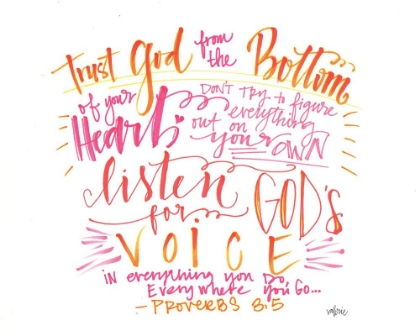 Trust God from the Bottom
of your Heart
DON'T TRY to figure
out everything
on your OWN
listen for GOD'S
VOICE
IN everything you Do,
Everywhere you Go...
- PROVERBS 3:5
valerie